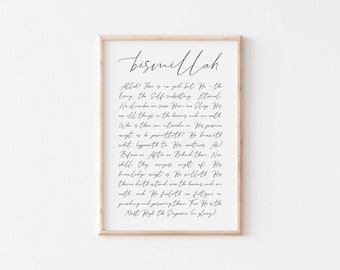 bismillah
Allah! There is no god but He - the
living, the Self-subsisting, Eternal.
No slumber can seize Him nor Sleep. His
are all things in the heavens and on earth.
Who is there can intercede in His presence
except as he permitteth? He knoweth
what (appeareth to His creatures As)
Before or After or Behind them. Nor
shall they compass aught of His
knowledge except as He willeth. His
throne doth extend over the heavens and on
earth, and He feeleth no fatigue in
guarding and preserving them, For He is the
Most High the Supreme (in glory).